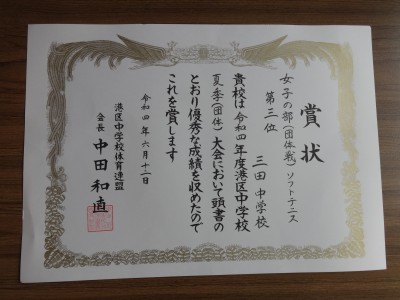 賞状
女子の部(団体戦)ソフトテニス
第三位
三田中学校
貴校は令和四年度港区中学校
夏季(団体)大会において頭書の
とおり優秀な成績を収めたので
これを賞します
令和四年六月十二日
港区中学校体育連盟
会長 中田和直